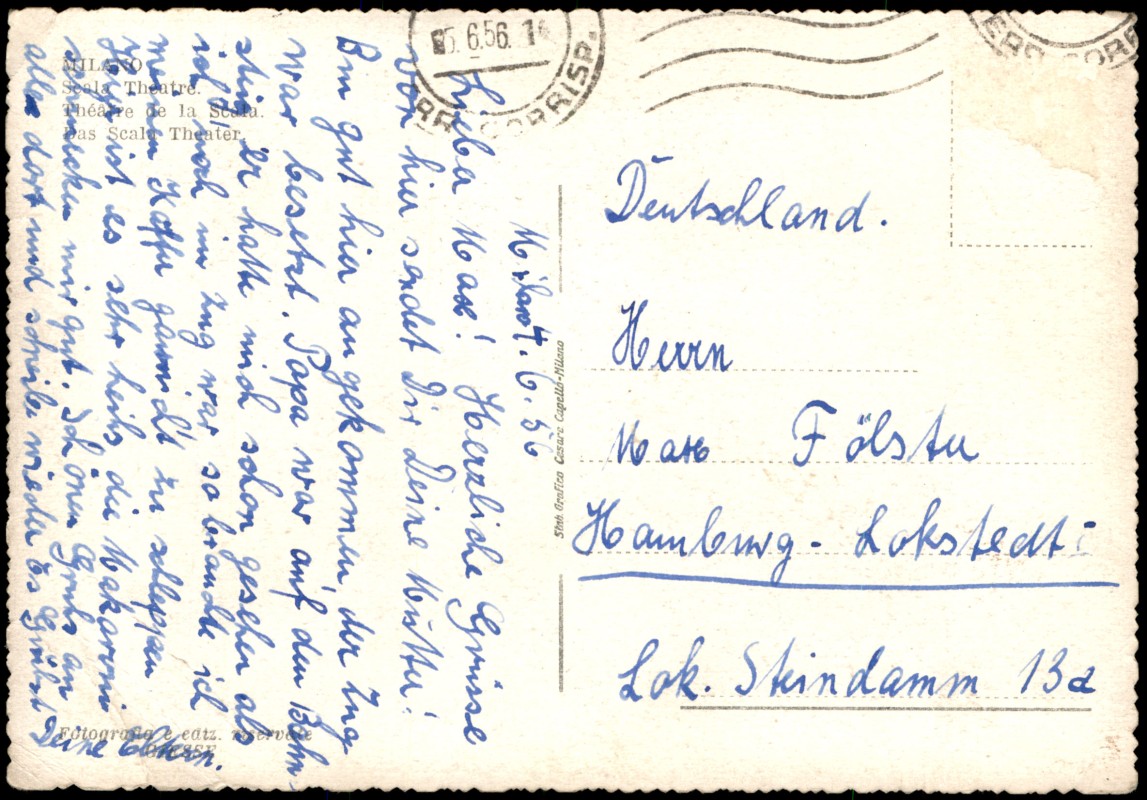 MILANO
Scala Theatre.
Théatre de la Scala.
Das Scala Theater.
5. 6. 56. 1
CORRISP.
CORR
Milano 4. 6. 56
Lieber Max! Herzliche Grüsse
von hier sendet Dir Deine Mutter!
Bin gut hier angekommen, der Zug
war besetzt. Papa war auf dem Bahn-
steig. Er hatte mich schon gesehen als
ich noch im Zug war, so brauchte ich
meinen Koffer garnicht zu schleppen
Hier ist es sehr heiß, die Makaroni
schmecken mir gut. Schönen Gruß an
alle dort und schreibe wieder. Es grüßt
Deine Eltern.
Fotografia e ediz. riservate
Stab. Grafico Cesare Capello-Milano
Deutschland.
Herrn
Max Fölster
Hamburg - Lokstedt
Lok. Steindamm 13a